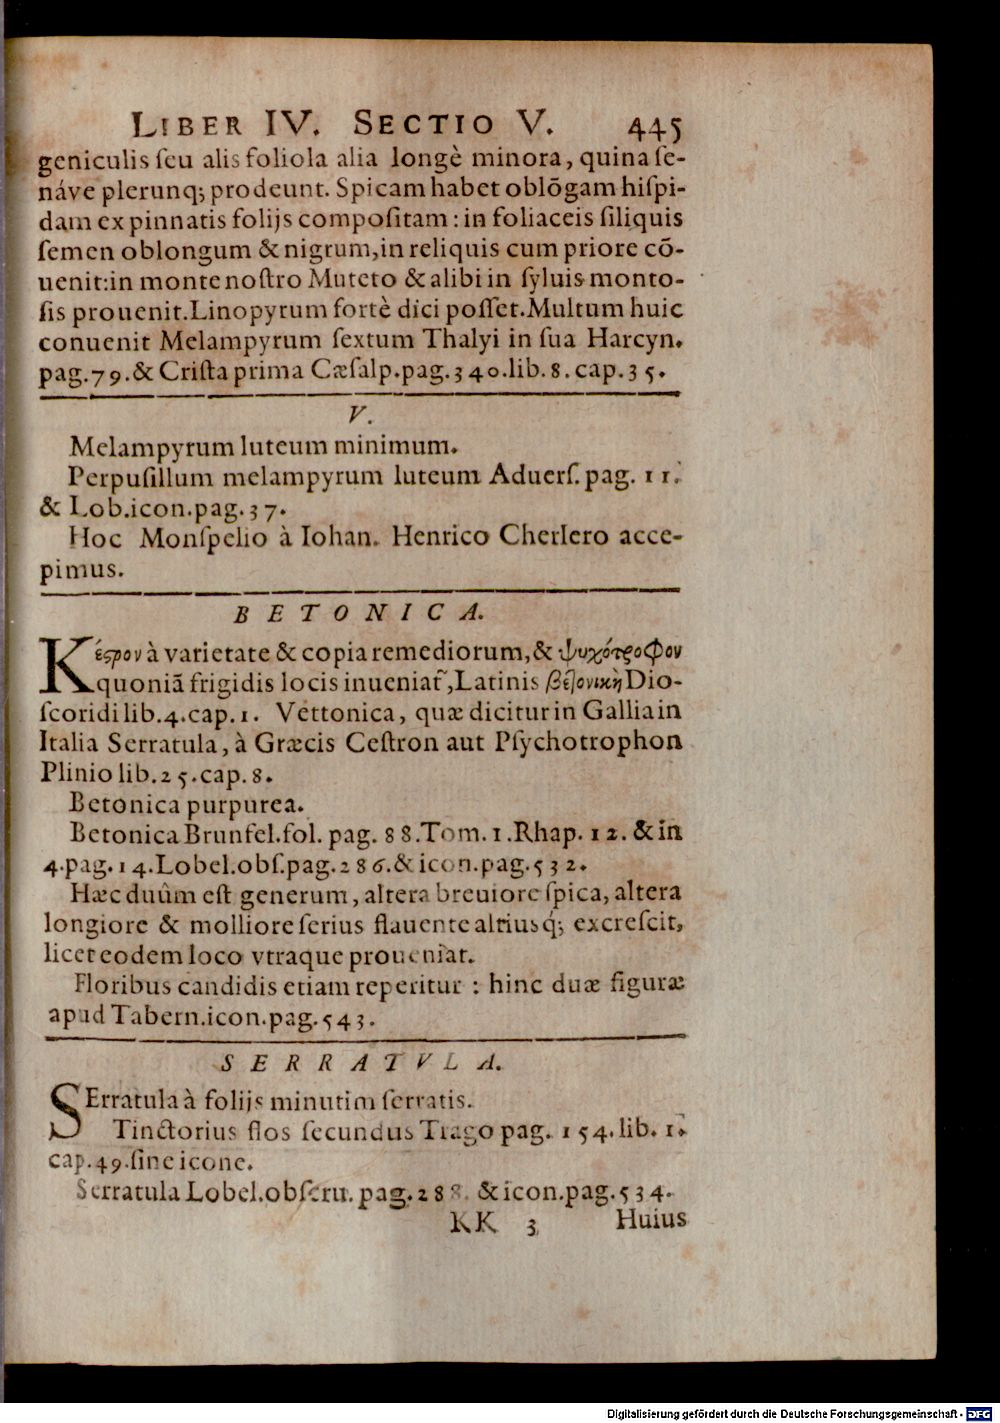 LIBER IV. SECTIO V. 445
geniculis ſeu alis foliola alia longè minora, quina ſe-
náve plerunq; prodeunt. Spicam habet oblōgam hiſpi-
dam ex pinnatis folijs compoſitam: in foliaceis ſiliquis
ſemen oblongum & nigrum, in reliquis cum priore cō-
uenit: in monte noſtro Muteto & alibi in ſyluis monto-
ſis prouenit. Linopyrum fortè dici poſſet. Multum huic
conuenit Melampyrum ſextum Thalyi in ſua Harcyn.
pag. 79. & Criſta prima Cæſalp. pag. 340. lib. 8. cap. 35.
V.
Melampyrum luteum minimum.
Perpuſillum melampyrum luteum Aduerſ. pag. 11.
& Lob. icon. pag. 37.
Hoc Monſpelio à Iohan. Henrico Cherlero acce-
pimus.
BETONICA.
Κέςρον à varietate & copia remediorum, & ψυχότροφον
quoniā frigidis locis inueniat᷑, Latinis βετονικὴ Dio-
ſcoridi lib. 4. cap. 1. Vettonica, quæ dicitur in Gallia in
Italia Serratula, à Græcis Ceſtron aut Pſychotrophon
Plinio lib. 25. cap. 8.
Betonica purpurea.
Betonica Brunfel. fol. pag. 88. Tom. 1. Rhap. 12. & in
4. pag. 14. Lobel. obſ. pag. 286. & icon. pag. 532.
Hæc duûm eſt generum, altera breuiore ſpica, altera
longiore & molliore ſerius flauente altiusq́; excreſcit,
licet eodem loco vtraque proueniat.
Floribus candidis etiam reperitur: hinc duæ figuræ
apud Tabern. icon. pag. 543.
SERRATVLA.
SErratula à folijs minutim ſerratis.
Tinctorius flos ſecundus Trago pag. 154. lib. 1.
cap. 49. ſine icone.
Serratula Lobel. obſeru. pag. 288. & icon. pag. 534.
KK 3 Huius
Digitalisierung gefördert durch die Deutsche Forschungsgemeinschaft - DFG